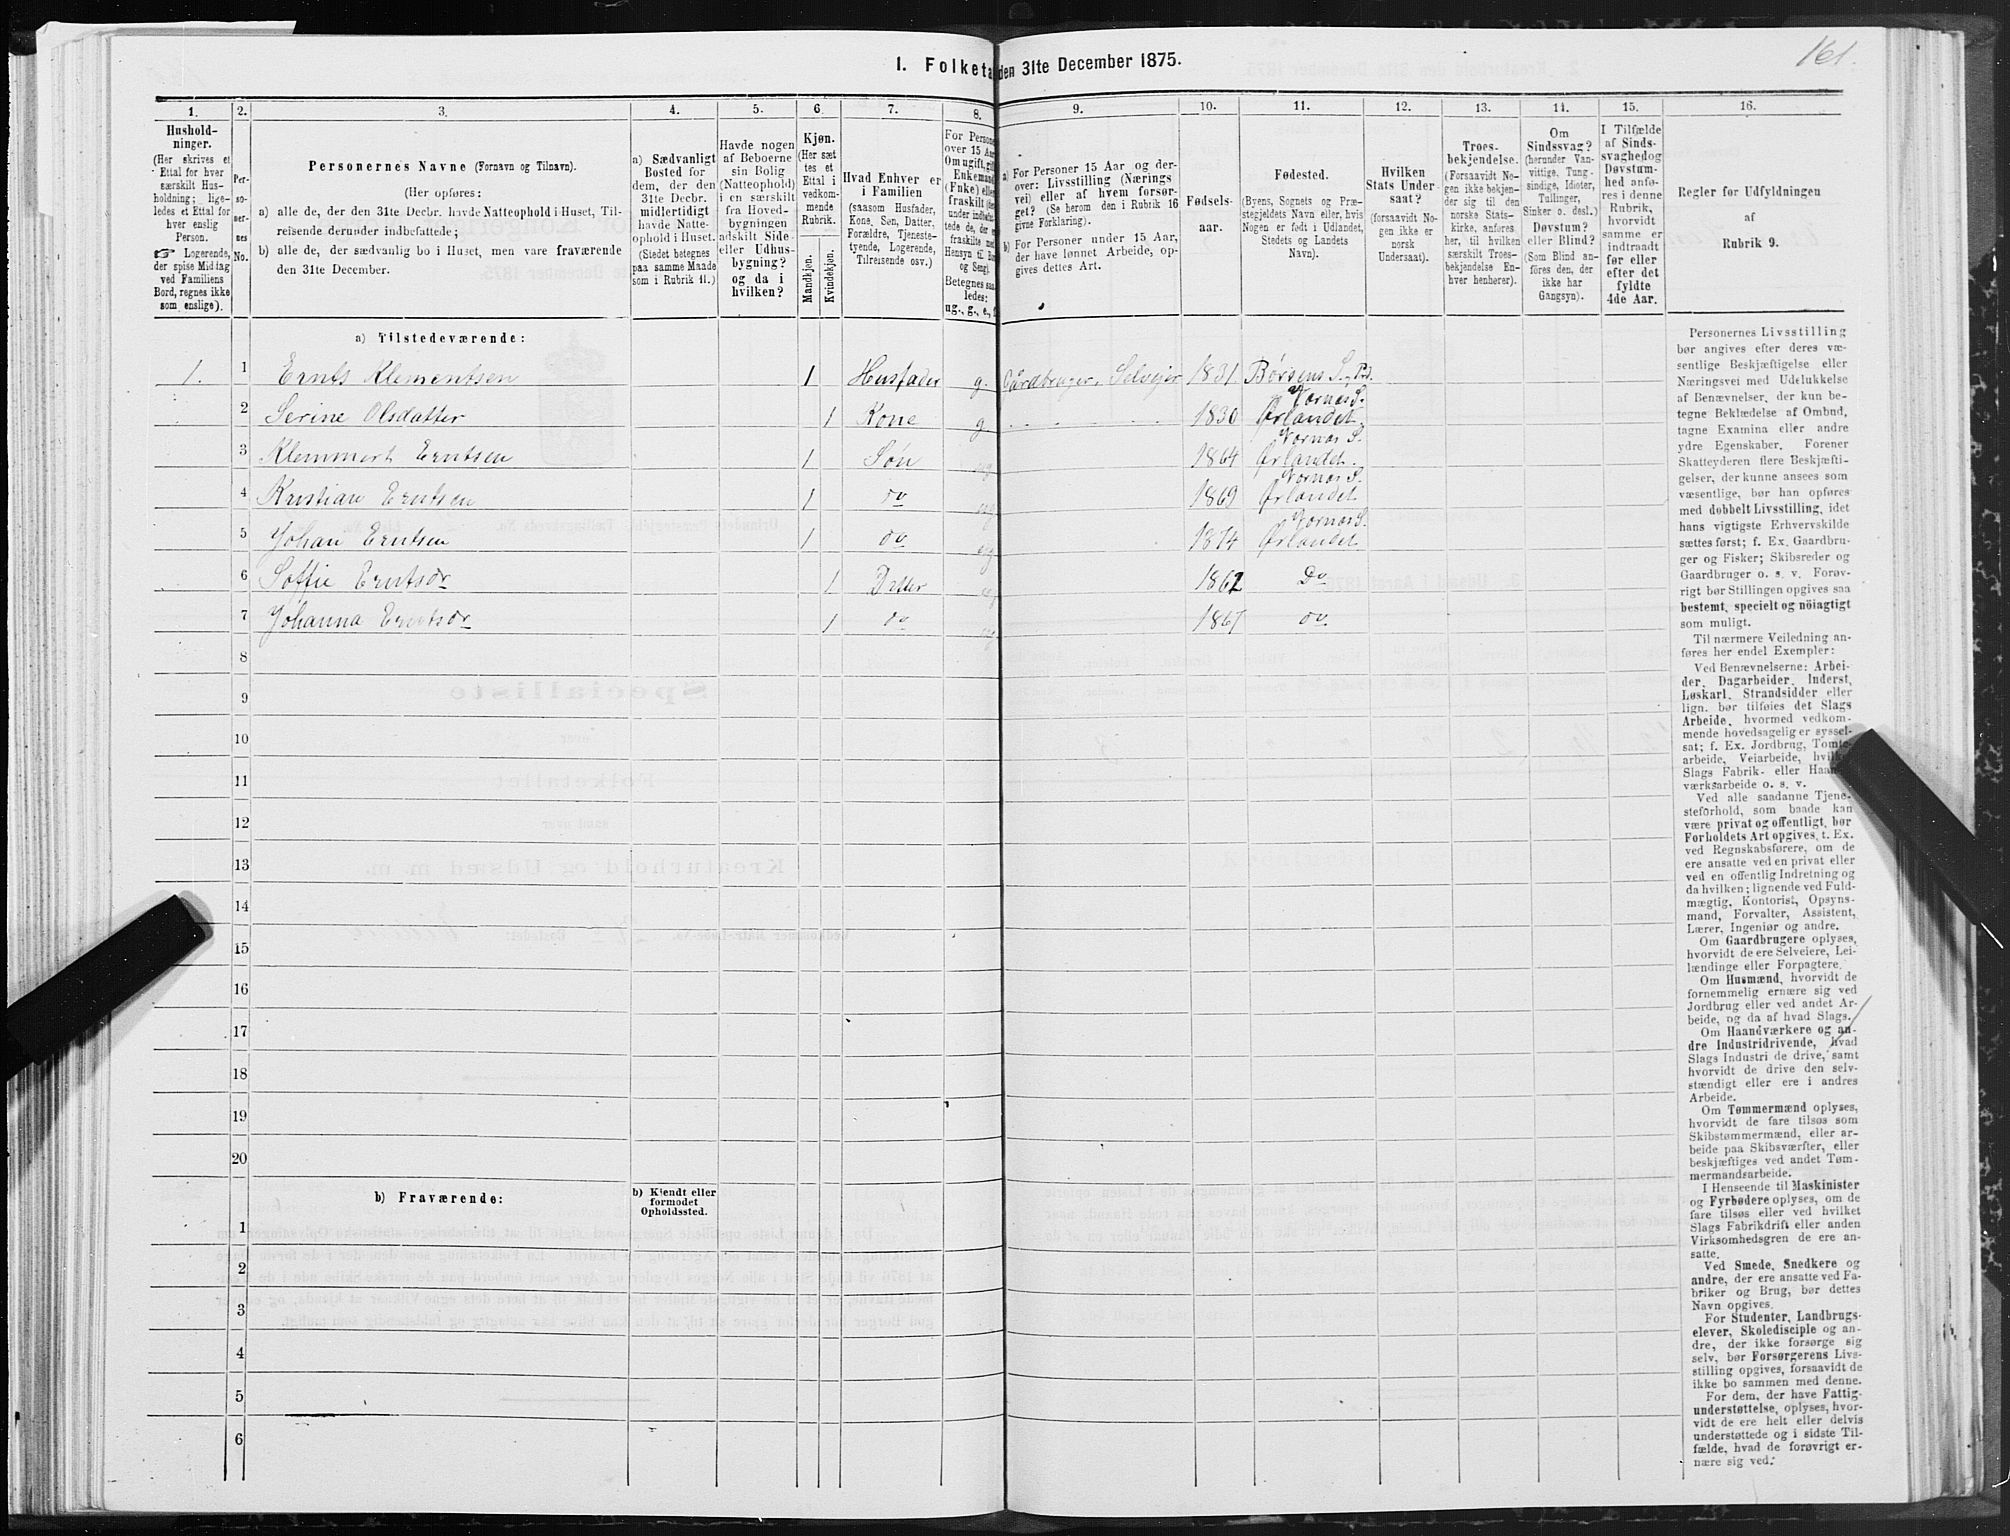 161.
1. Folketa den 31te December 1875.
1. 2. 3. 4. 5. 6 7. 8. 9. 10. 11. 12. 13. 14. 15. 16.
Hushold-
ninger.
(Her skrives et
Ettal for hver
særskilt Hus-
holdning; lige-
ledes et Ettal for
hver enslig
Person.
☞ Logerende,
der spise Middag
ved Familiens
Bord, regnes ikke
som enslige).
Per-
so-
ner-
nes
No.
Personernes Navne (Fornavn og Tilnavn).
(Her opføres:
a) alle de, der den 31te Decbr. havde Natteophold i Huset, Til-
reisende derunder indbefattede;
b) alle de, der sædvanlig bo i Huset, men vare fraværende
den 31te December.
a) Sædvanligt
Bosted for
dem, der den
31te Decbr.
midlertidigt
havde Natte-
ophold i Huset.
(Stedet betegnes
paa samme Maade
som i Rubrik 11.)
Havde nogen
af Beboerne
sin Bolig
(Natteophold)
i en særskilt
fra Hoved-
bygningen
adskilt Side-
eller Udhus-
bygning?
og da i
hvilken?
Kjøn.
(Her sæt
tes et
Ettal i
vedkom-
mende
Rubrik.
Mandkjøn.
Kvindekjøn.
Hvad Enhver er
i Familien
(saasom Husfader,
Kone, Søn, Datter,
Forældre, Tjeneste-
tyende, Logerende,
Tilreisende osv.)
For Persone
over 15 Aar
Om ugift, gift
Enkemand
(Enke) eller
fraskilt (der-
under indbefat-
tede de, der e
fraskilte med
Hensyn til Bo
og Seng).
Betegnes saa
ledes:
ug., g., e., f.
a) For Personer 15 Aar og der-
over: Livsstilling (Nærings
vei) eller af hvem forsør-
get? (Se herom den i Rubrik 16
givne Forklaring).
b) For Personer under 15 Aar,
der have lønnet Arbeide, op-
gives dettes Art.
Fødsels-
aar.
Fødested.
(Byens, Sognets og Præ-
stegjeldets Navn eller, hvis
Nogen er født i Udlandet,
Stedets og Landets
Navn).
Hvilken
Stats Under-
saat?
(forsaavidt No-
gen ikke er
norsk
Undersaat).
Troes-
bekjendelse.
(Forsaavidt No-
gen ikke bekjen-
der sig til den
norske Stats-
kirke, anføres
her, til hvilken
særskilt Troes-
bekjendelse En-
hver henhører).
Om
Sindssvag?
(herunder Van-
vittige, Tung-
sindige, Idioter,
Tullinger,
Sinker o. desl.)
Døvstum?
eller Blind?
(Som Blind an-
føres den, der
ikke har
Gangsyn).
I Tilfælde
af Sinds-
svaghed og
Døvstum-
hed anfø-
res i denne
Rubrik,
hvorvidt
samme er
indtraadt
før eller
efter det
fyldte
4de Aar.
Regler for Udfyldningen
af
Rubrik 9.
a) Tilstedeværende:
1. 1 Ernts Klementsen 1 Husfader g. Gårdbruger, Selvejer 1831 Børsens S. Pd.
2 Serine Olsdatter 1 Kone g 1830 Vornæs S. Ørlandet
3 Klemmert Erntsen 1 Søn ug 1864 Vornæs S. Ørlandet.
4 Kristian Erntsen 1 do ug 1869 Vornæs S. Ørlandet
5 Johan Erntsen 1 do ug 1874 Vornæs S. Ørlandet
6 Soffie Erntsdr 1 Datter ug 1862 Do
7 Johanna Erntsdr 1 do ug 1867 do
8
9
10
11
12
13
14
15
16
17
18
19
20
b) Fraværende:
b) Kjendt eller
formodet
Opholdssted.
1
2
3
4
5
6
Personernes Livsstilling
bør angives efter deres væ-
sentlige Beskjæftigelse eller
Næringsvei med Udelukkelse
af Benævnelser, der kun be-
tegne Beklædelse af Ombud,
tagne Examina eller andre
ydre Egenskaber. Forener
Skatteyderen flere Beskjæfti-
gelser, der kunne ansees som
væsentlige, bør han opføres
med dobbelt Livsstilling, idet
hans vigtigste Erhvervskilde
sættes først; f. Ex. Gaardbru-
ger og Fisker; Skibsreder og
Gaardbruger o. s. v. Forøv-
rigt bør Stillingen opgives saa
bestemt, specielt og nöiagtigt
som muligt.
Til nærmere Veiledning an-
føres her endel Exempler:
Ved Benævnelserne: Arbei-
der, Dagarbeider, Inderst,
Løskarl, Strandsidder eller
lign. bør tilføies det Slags
Arbeide, hvormed vedkom-
mende hovedsagelig er syssel-
sat; f. Ex. Jordbrug, Tomte-
arbeide, Veiarbeide, hvilket
Slags Fabrik- eller Haand-
værksarbeide o. s. v.
Ved alle saadanne Tjene-
steforhold, som baade kan
være privat og offentligt, bør
Forholdets Art opgives, t. Ex.
ved Regnskabsførere, om de
ere ansatte ved en privat eller
ved en offentlig Indretning og
da hvilken; lignende ved Fuld-
mægtig, Kontorist, Opsyns-
mand, Forvalter, Assistent,
Lærer, Ingeniør og andre.
Om Gaardbrugere oplyses,
hvorvidt de ere Selveiere, Lei-
lændinge eller Forpagtere.
Om Husmænd, hvorvidt de
fornemmelig ernære sig ved
Jordbrug eller ved andet Ar-
beide, og da af hvad Slags.
Om Haandværkere og an-
dre Industridrivende, hvad
Slags Industri de drive, samt
hvorvidt de drive den selv-
stændigt eller ere i andres
Arbeide.
Om Tømmermænd oplyses,
hvorvidt de fare tilsøs som
Skibstømmermænd, eller ar-
beide paa Skibsværfter, eller
beskjæftiges ved andet Tøm-
mermandsarbeide.
I Henseende til Maskinister
og Fyrbødere oplyses, om de
fare tilsøs eller ved hvilket
Slags Fabrikdrift eller anden
Virksomhedsgren de ere an-
satte.
Ved Smede, Snedkere og
andre, der ere ansatte ved Fa-
briker og Brug, bør dettes
Navn opgives.
For Studenter, Landbrugs-
elever, Skoledisciple og an-
dre, der ikke forsørge sig
selv, bør Forsørgerens Livs-
stilling opgives, forsaavidt de
ikke bo sammen med denne.
For dem, der have Fattig-
understøttelse, oplyses, hvor-
vidt de ere helt eller delvis
understøttede og i sidste Til-
fælde, hvad de forøvrigt er-
nære sig ved.